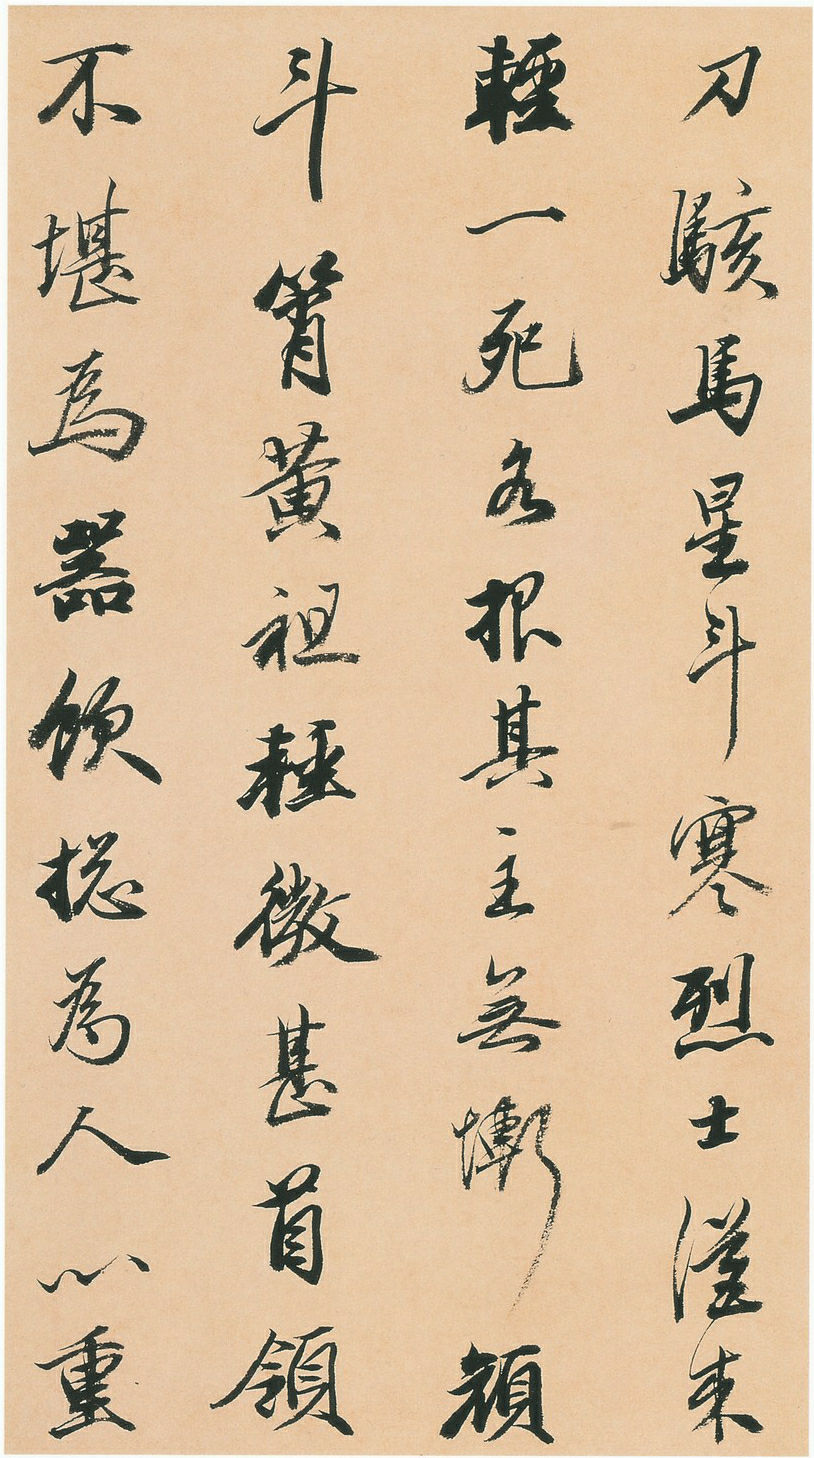 刀駭馬星斗寒烈士從來
輕一死名根其主無慚顔
斗筲黄祖輕微甚首領
不堪爲器飲摠爲人心重